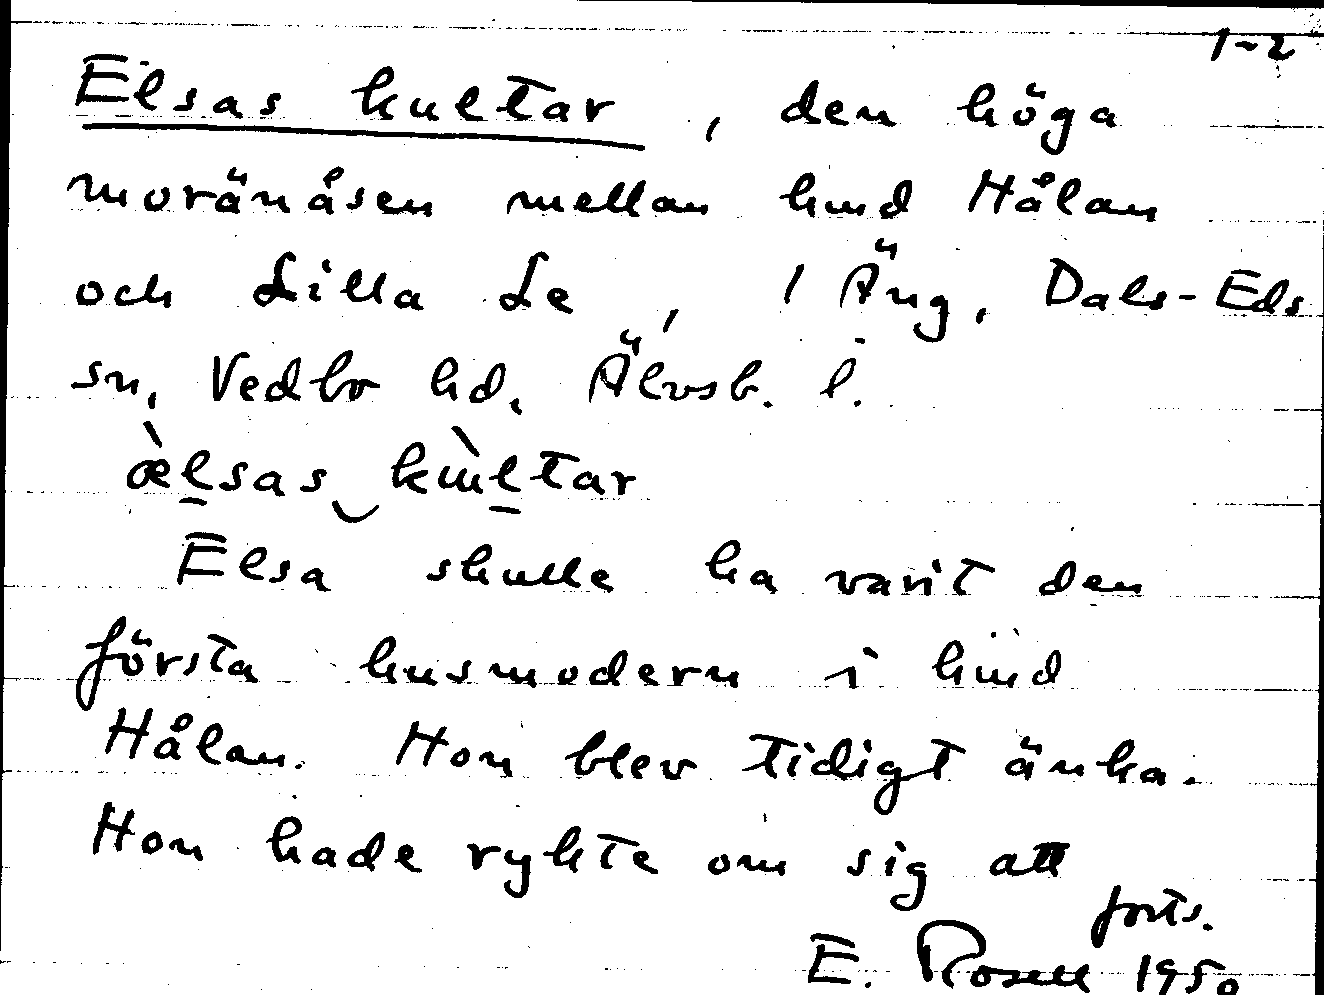 1-2
Elsas kultar, den höga
moränåsen mellan hmd Hålan
och Lilla Le, 1 Äng, Dals-Eds
sn, Vedbo hd, Älvsb. l.
æ̀l̠sas‿kùl̠tar
Elsa skulle ha varit den
första husmodern i hmd
Hålan. Hon blev tidigt änka.
Hon hade rykte om sig att
forts.
E. Rosell 1950